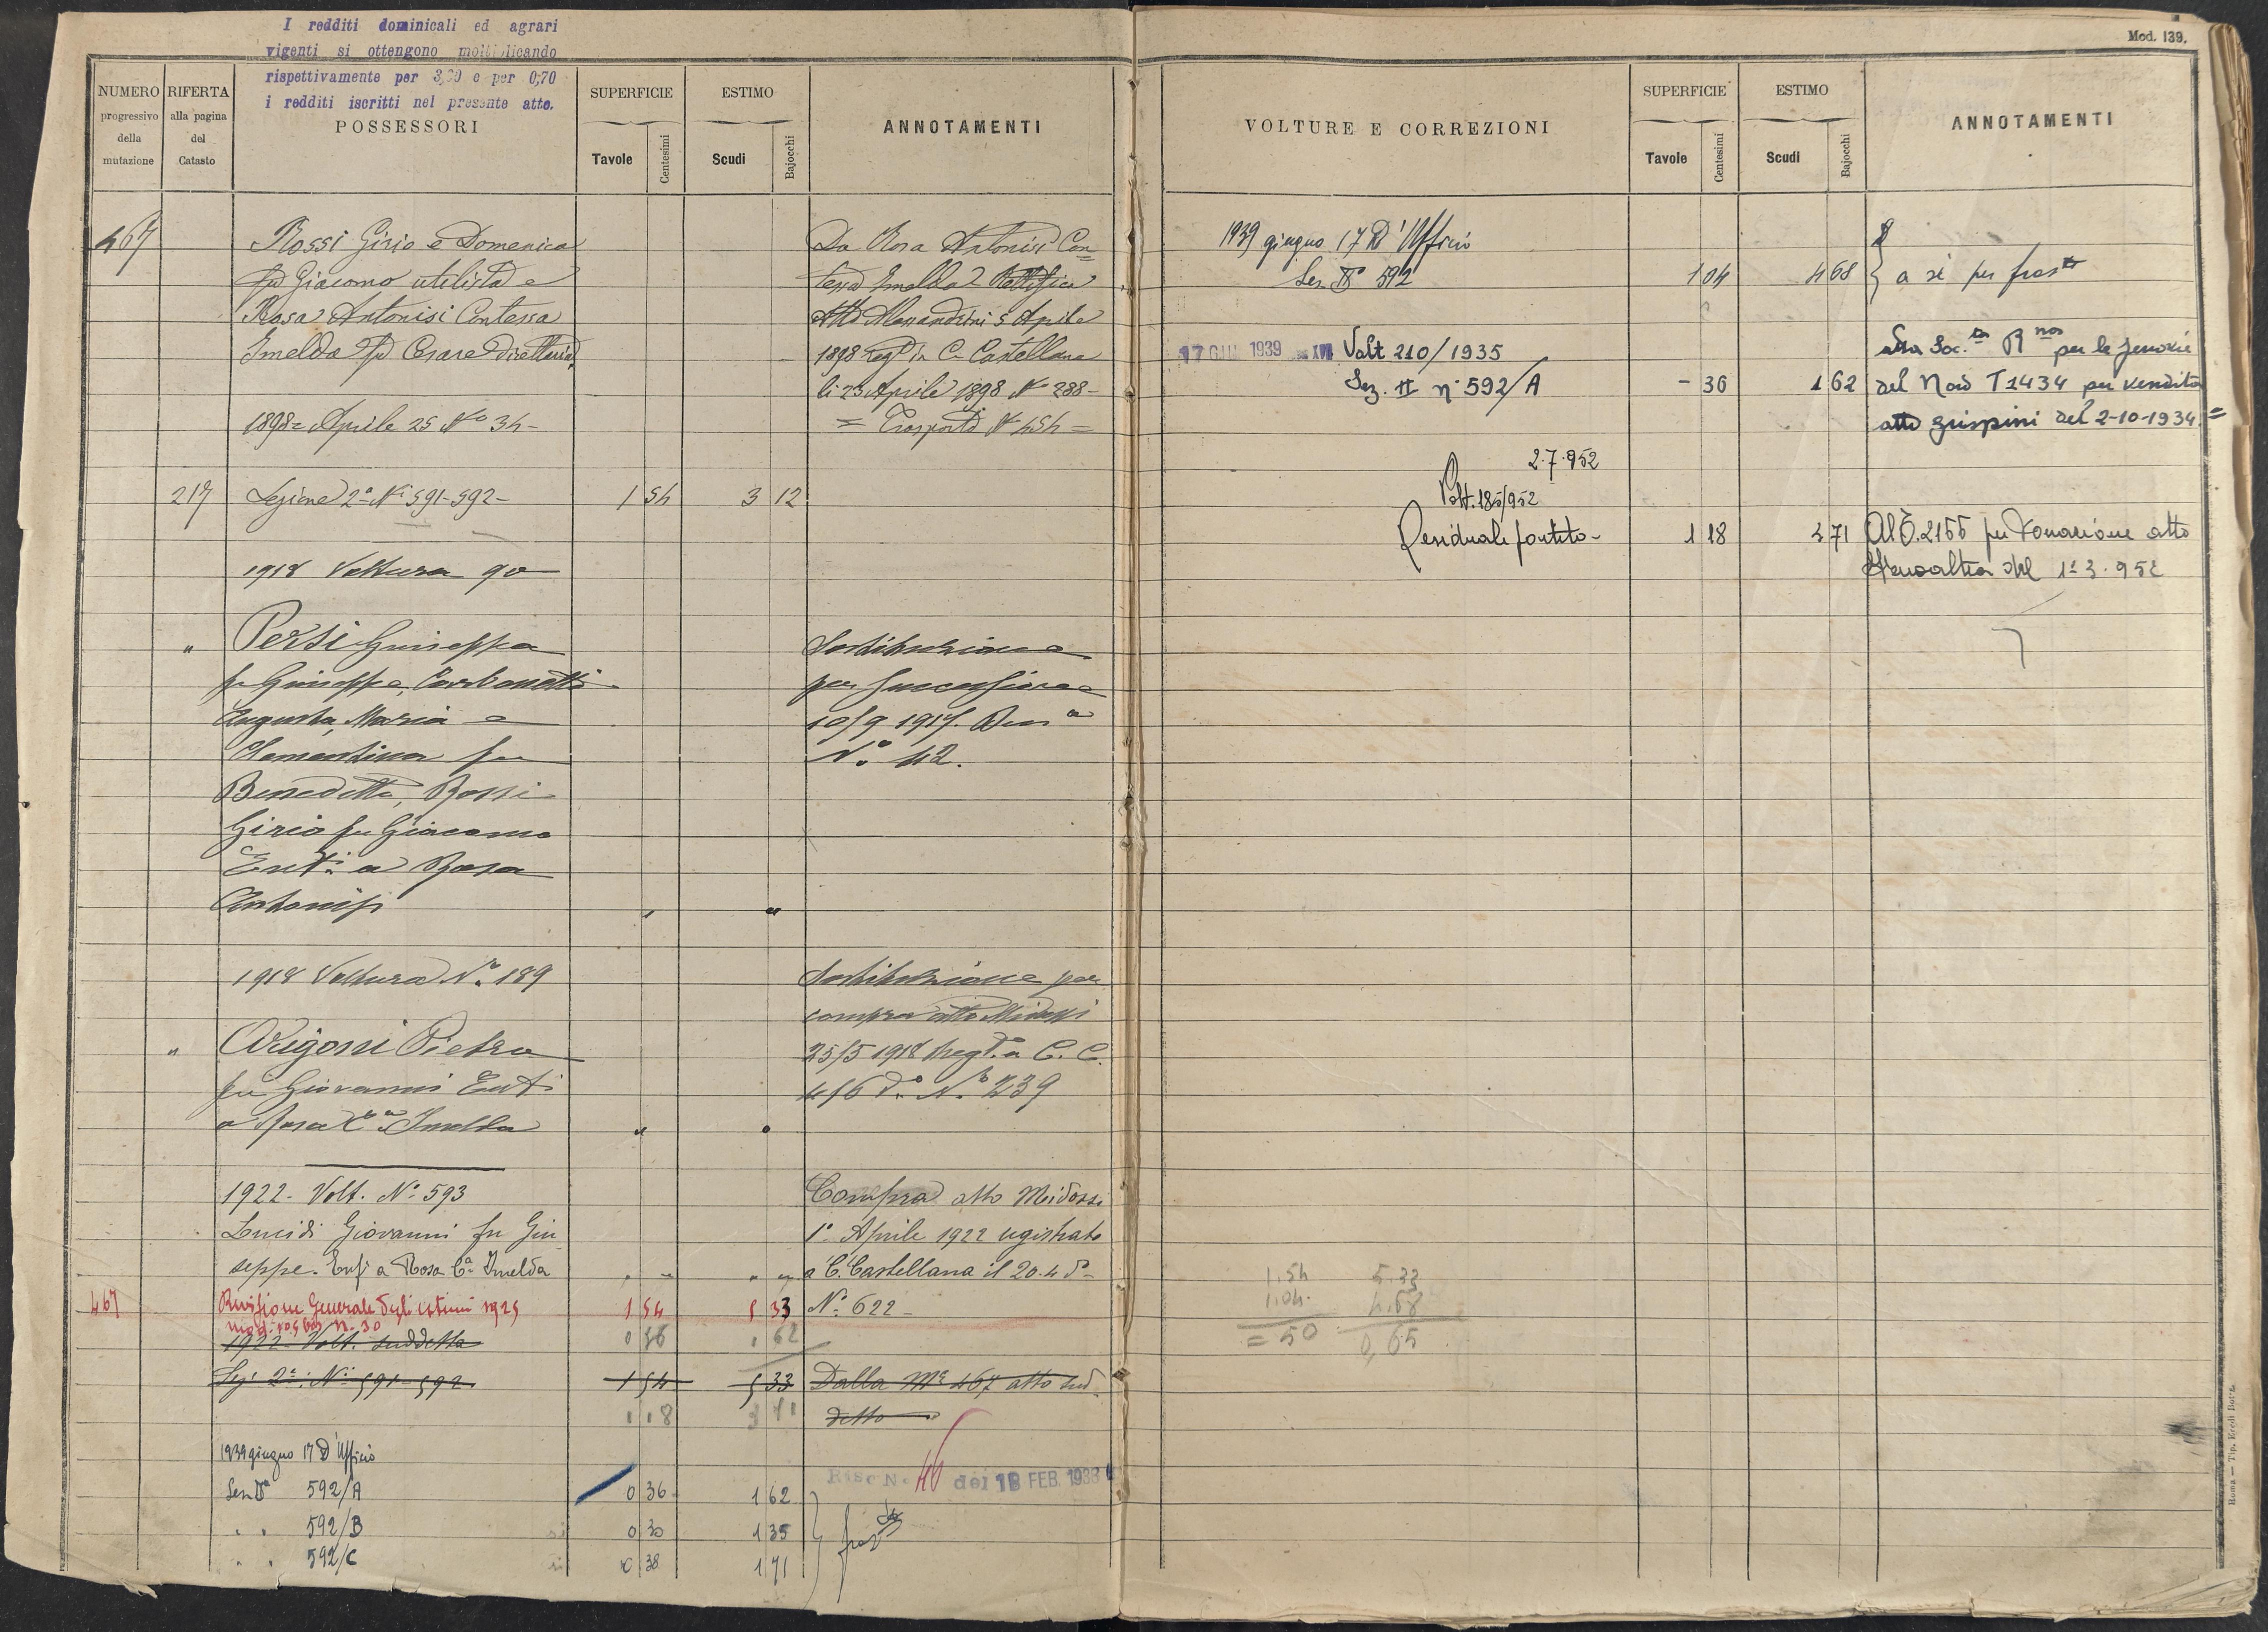 I redditi dominicali ed agrari
vigenti si ottengono moltiplicando
rispettivamente per 3,20 e per 0,70
i redditi iscritti nel presente atto.
NUMERO
progressivo
della
mutazione
RIFERTA
alla pagina
del
Catasto
POSSESSORI
SUPERFICIE
Tavole
Centesimi
ESTIMO
Scudi
Bajocchi
ANNOTAMENTI
467
Rossi Girio e Domenica
fu Giacomo utilista e
Rosa Antonisi Contessa
Imelda fu Cesare Direttaria
1898 = Aprile 25 No 34 -
217 Sezione 2a Ni 591-592 - 1 54 3 12
1918 Voltura 90
" Persi Giuseppa
fu Giuseppe, Carbonetti
Augusta, Maria e
Clementina fu
Benedetto, Rossi
Girio fu Giacomo
Enfi a Rosa
Antonisi " "
1918 Voltura No. 189
" Arigoni Pietro
fu Giovanni Enfi
a Rosa Ca Imelda " "
1922 - Volt. No 593
Lucidi Giovanni fu Giu
seppe. Enfi a Rosa Ca Imelda " " " "
467 Revisione Generale degli estimi 1925 1 54 5 33
mod. 105 bis n. 30
1922 Volt. suddetta 0 36 1 62
Sez. 2a. Ni 591-592 1 54 5 33
1 18 3 71
1939 giugno 17 D'Ufficio
Sez IIa 592/A 0 36 1 62
" " 592/B 0 30 1 35
" " 592/C 0 38 1 71
Da Rosa Antonisi Con=
tessa Imelda Rettifica
Atto Alessandrini 5 Aprile
1898 regto in C. Castellana
li 23 Aprile 1898 No 288 -
= Trasporto No 454 =
Sostituzione
per successione
10/9 1917. Den a
No. 42.
Sostituzione per
compra atto Midossi
25/5 1918 regto a C. C.
4/6 do. No 239
Compra atto Meidossi
1o Aprile 1922 registrato
a C. Castellana il 20.4 do -
No 622 -
Dalla Ma 467 atto sud-
detto
Risc No 46 del 18 FEB. 1938
fraz to
Mod. 139.
VOLTURE E CORREZIONI
SUPERFICIE
Tavole
Centesimi
ESTIMO
Scudi
Bajocchi
ANNOTAMENTI
1939 giugno 17 D'Ufficio
Sez. IIa 592 1 04 4 68 a sé per fraz to
17 GIU 1939 XVII Volt 210/1935
Sez. II n° 592/A - 36 1 62
alla Soc.ta Rnos per le ferrovie
del Nord T 1434 per vendita
atto Grispini del 2-10-1934 =
2.7.952
Volt. 185/952
Residuale partita - 1 18 3 71 Al T. 2155 per donazione atto
del 1° 3.952
1.54 5.33
1.04 4.68
= 50 0,65
Roma — Tip. Eredi Botta.